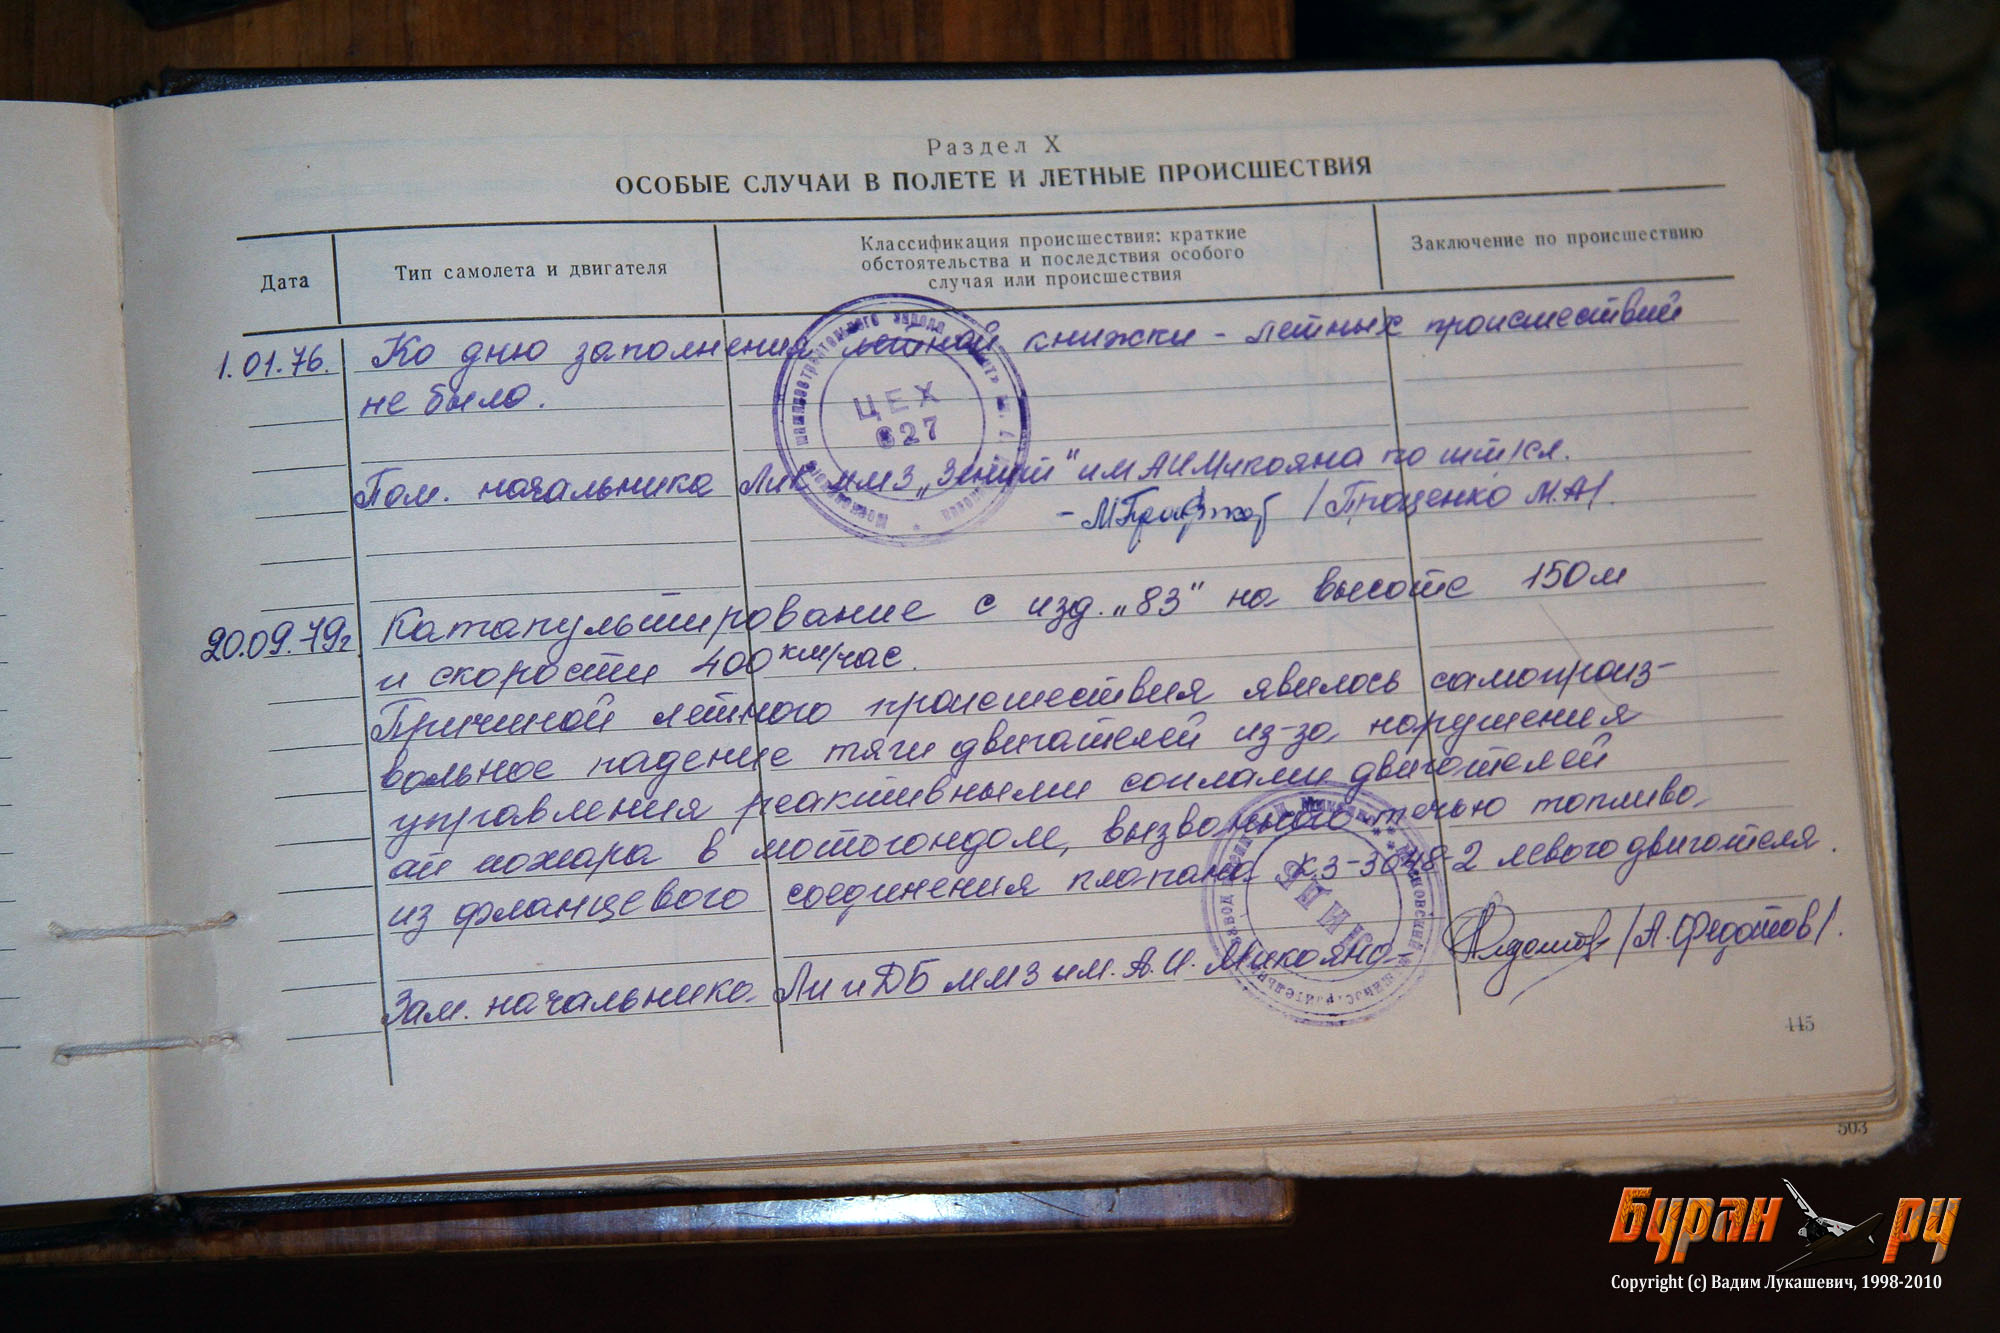 Раздел X
ОСОБЫЕ СЛУЧАИ В ПОЛЕТЕ И ЛЕТНЫЕ ПРОИСШЕСТВИЯ
Дата
Тип самолета и двигателя
Классификация происшествия: краткие
обстоятельства и последствия особого
случая или происшествия
Заключение по происшествию
1.01.76. Ко дню заполнения летной книжки - летных происшествий
не было.
ЦЕХ
627
Пом. начальника ЛИК ММЗ „Зенит" им АИ Микояна по
/Проценко М.А/.
20.09.79г. Катапультирование с изд. „83" на высоте 150м
и скорости 400 км/час.
Причиной летного происшествия явилось самопроиз-
вольное падение тяги двигателей из-за нарушения
управления реактивными соплами двигателей
от пожара в мотогондом, вызванного течью топлива
из фланцевого соединения клапана КЗ-3048-2 левого двигателя.
Зам. начальника ЛИ и ДБ ММЗ им. А.И. Микояна /А. Федотов/.
445
503
Буран ру
Copyright (c) Вадим Лукашевич, 1998-2010